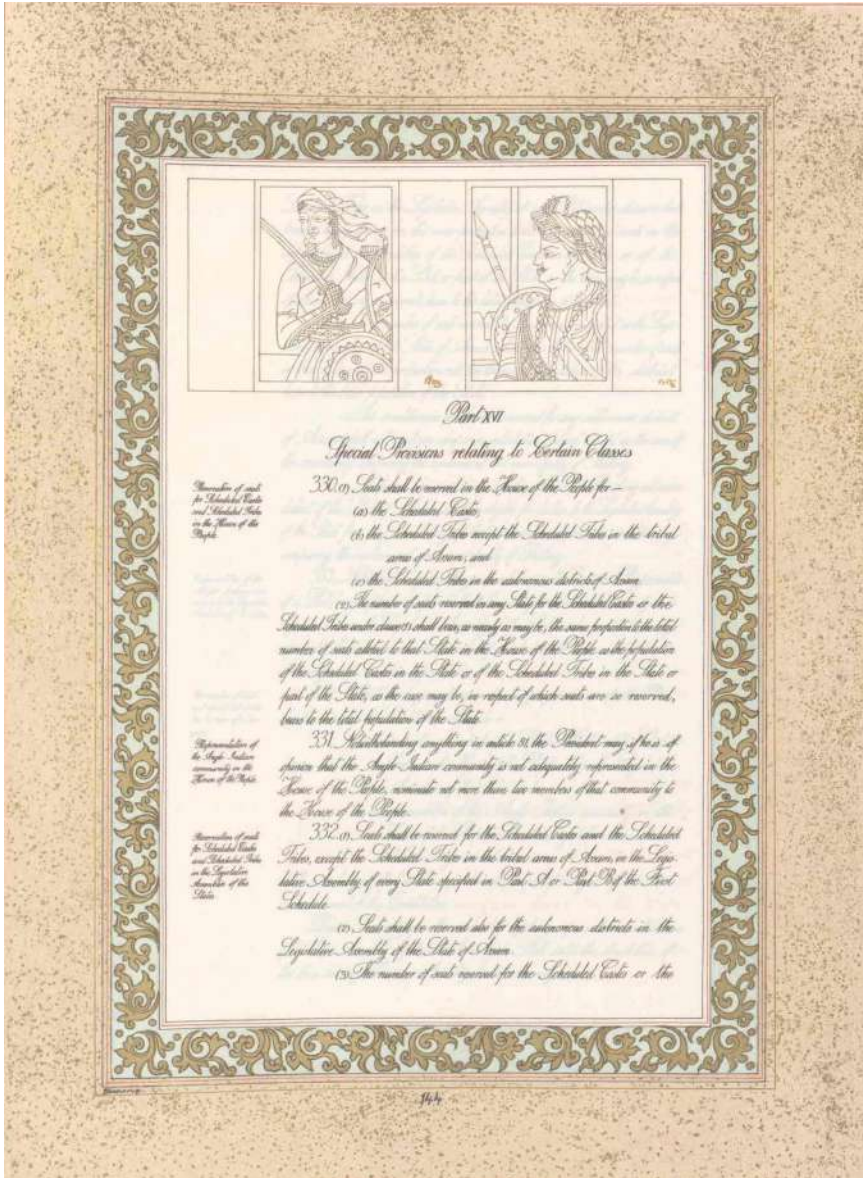 Part XVI
Special Provisions relating to Certain Classes
Reservation of seats
for Scheduled Castes
and Scheduled Tribes
in the House of the
People.
330. (1) Seats shall be reserved in the House of the People for —
(a) the Scheduled Castes;
(b) the Scheduled Tribes except the Scheduled Tribes in the tribal
areas of Assam; and
(c) the Scheduled Tribes in the autonomous districts of Assam.
(2) The number of seats reserved in any State for the Scheduled Castes or the
Scheduled Tribes under clause (1) shall bear, as nearly as may be, the same proportion to the total
number of seats allotted to that State in the House of the People as the population
of the Scheduled Castes in the State or of the Scheduled Tribes in the State or
part of the State, as the case may be, in respect of which seats are so reserved,
bears to the total population of the State.
Representation of
the Anglo-Indian
community in the
House of the People.
331. Notwithstanding anything in article 81, the President may, if he is of
opinion that the Anglo-Indian community is not adequately represented in the
House of the People, nominate not more than two members of that community to
the House of the People.
Reservation of seats
for Scheduled Castes
and Scheduled Tribes
in the Legislative
Assemblies of the
States.
332. (1) Seats shall be reserved for the Scheduled Castes and the Scheduled
Tribes, except the Scheduled Tribes in the tribal areas of Assam, in the Legis-
lative Assembly of every State specified in Part A or Part B of the First
Schedule.
(2) Seats shall be reserved also for the autonomous districts in the
Legislative Assembly of the State of Assam.
(3) The number of seats reserved for the Scheduled Castes or the
144